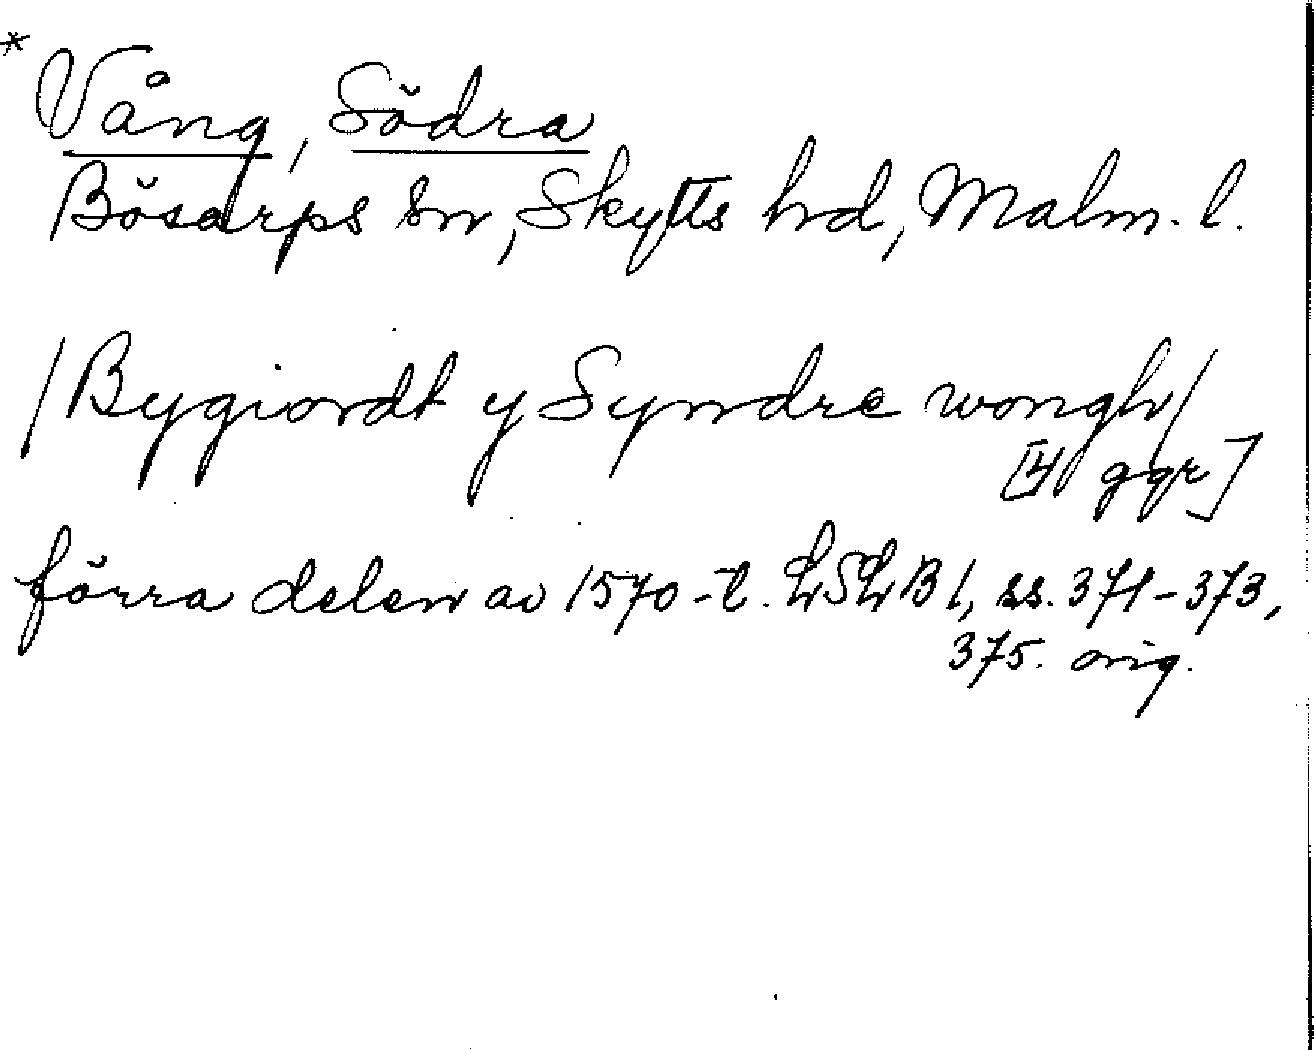 * Vång, Södra
Bösarps sn, Skytts hd, Malm. l.
/Bygiordt y Syndre wongh/
[4 ggr]
förra delen av 1570-t. LSLB1, ss. 371-373,
375. orig.